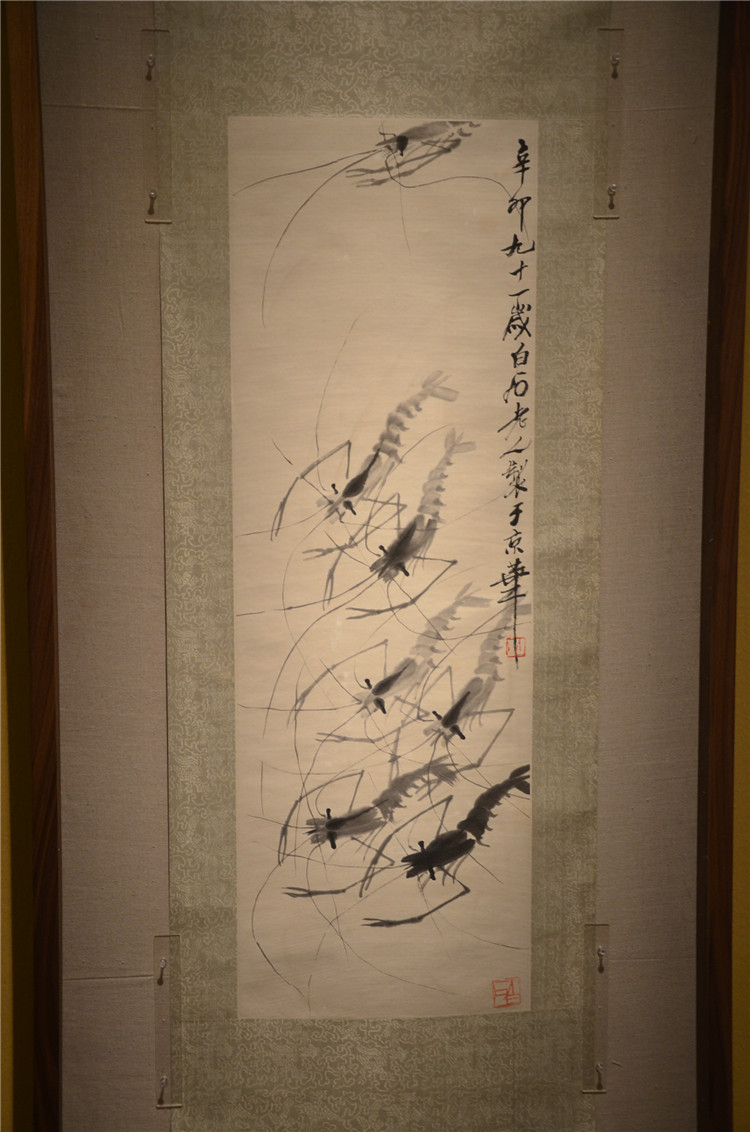 辛卯九十一歲白石老人製于京華